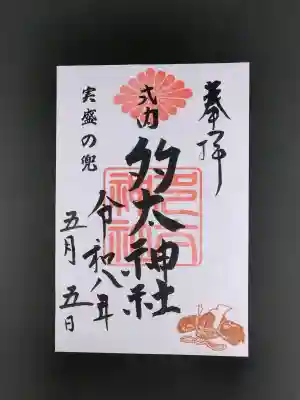 奉拝
式内
多太神社
実盛の兜
令和八年
五月五日
多太
神社